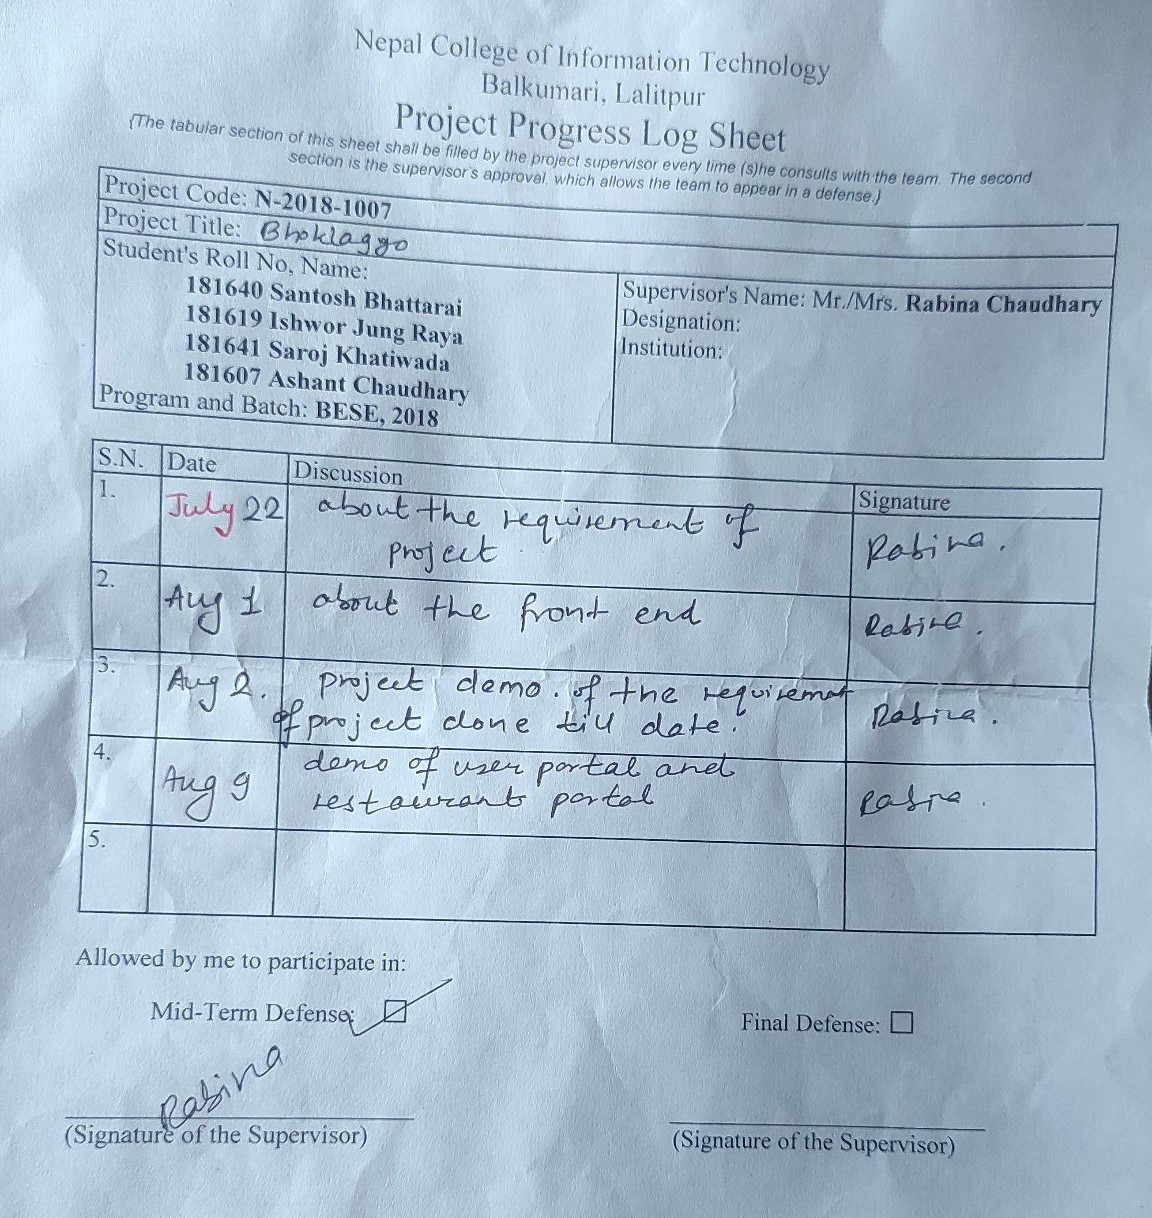 Nepal College of Information Technology
Balkumari, Lalitpur
Project Progress Log Sheet
{The tabular section of this sheet shall be filled by the project supervisor every time (s)he consults with the team. The second
section is the supervisor's approval, which allows the team to appear in a defense.}
Project Code: N-2018-1007
Project Title: Bhoklaggyo
Student's Roll No, Name:
181640 Santosh Bhattarai
181619 Ishwor Jung Raya
181641 Saroj Khatiwada
181607 Ashant Chaudhary
Program and Batch: BESE, 2018
Supervisor's Name: Mr./Mrs. Rabina Chaudhary
Designation:
Institution:
S.N. Date Discussion Signature
1. July 22 about the requirement of
project Rabina.
2. Aug 1 about the front end Rabina.
3. Aug 2. project demo. of the requirement
of project done till date. Rabina.
4. Aug 9 demo of user portal and
restaurant portal Rabina.
5.
Allowed by me to participate in:
Mid-Term Defense: Final Defense:
Rabina
(Signature of the Supervisor) (Signature of the Supervisor)